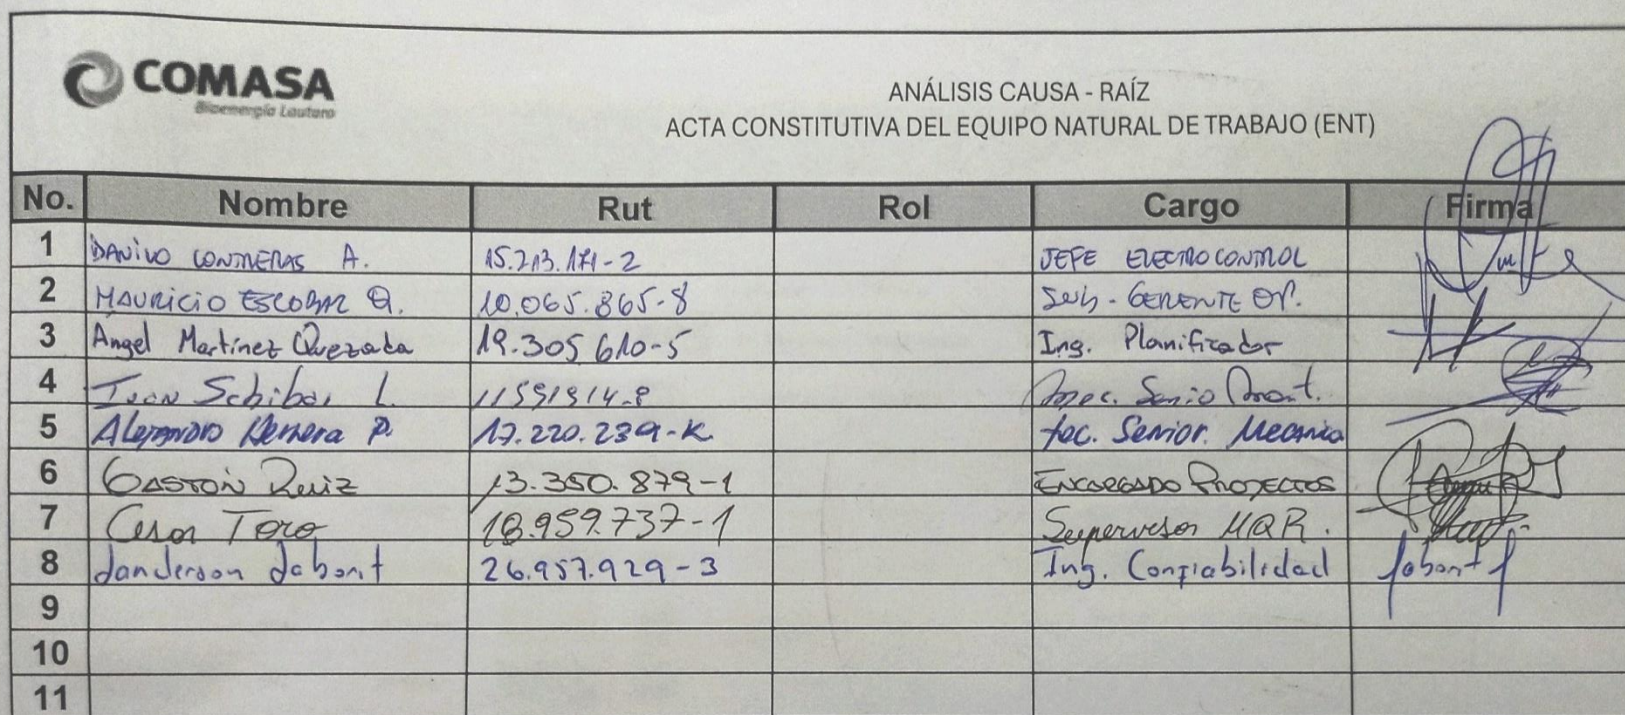 COMASA
Bioenergía Lautaro
ANÁLISIS CAUSA - RAÍZ
ACTA CONSTITUTIVA DEL EQUIPO NATURAL DE TRABAJO (ENT)
No. Nombre Rut Rol Cargo Firma
1 DANILO CONTRERAS A. 15.213.171-2 JEFE ELECTROCONTROL
2 MAURICIO ESCOBAR Q. 10.065.865-8 SUB-GERENTE OP.
3 Angel Martinez Quezada 19.305 610-5 Ing. Planificador
4 L.
5 Alejandro Herrera P. 17.220.239-K Tec. Senior. Mecanico
6 GASTON Ruiz 13.350.879-1 ENCARGADO PROYECTOS
7 Cesar Toro 18.959.737-1 Supervisor
8 Janderson Jabont 26.957.929-3 Ing. Confiabilidad Jabont J
9
10
11